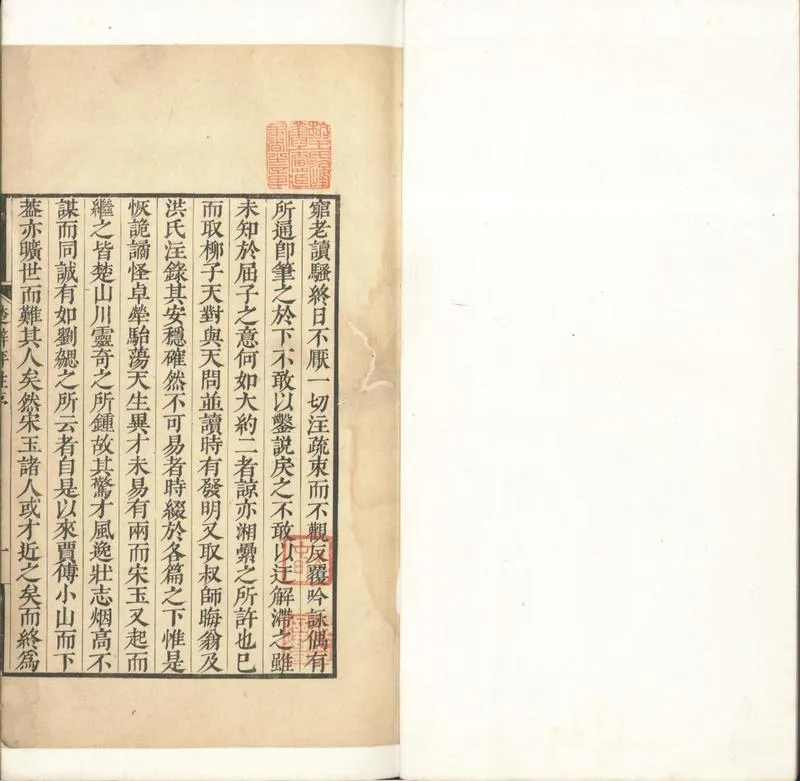 窮老讀騷終日不厭一切注疏束而不觀反覆吟詠偶有
所通卽筆之於下不敢以鑿說戾之不敢以迂解滯之雖
未知於屈子之意何如大約二者諒亦湘纍之所許也巳
而取柳子天對與天問並讀時有發明又取叔師晦翁及
洪氏注錄其安穩確然不可易者時綴於各篇之下惟是
恢詭譎怪卓犖駘蕩天生異才未易有兩而宋玉又起而
繼之皆楚山川靈奇之所鍾故其驚才風逸壯志烟高不
謀而同誠有如劉勰之所云者自是以來賈傅小山而下
葢亦曠世而難其人矣然宋玉諸人或才近之矣而終爲
楚辭評註序
一